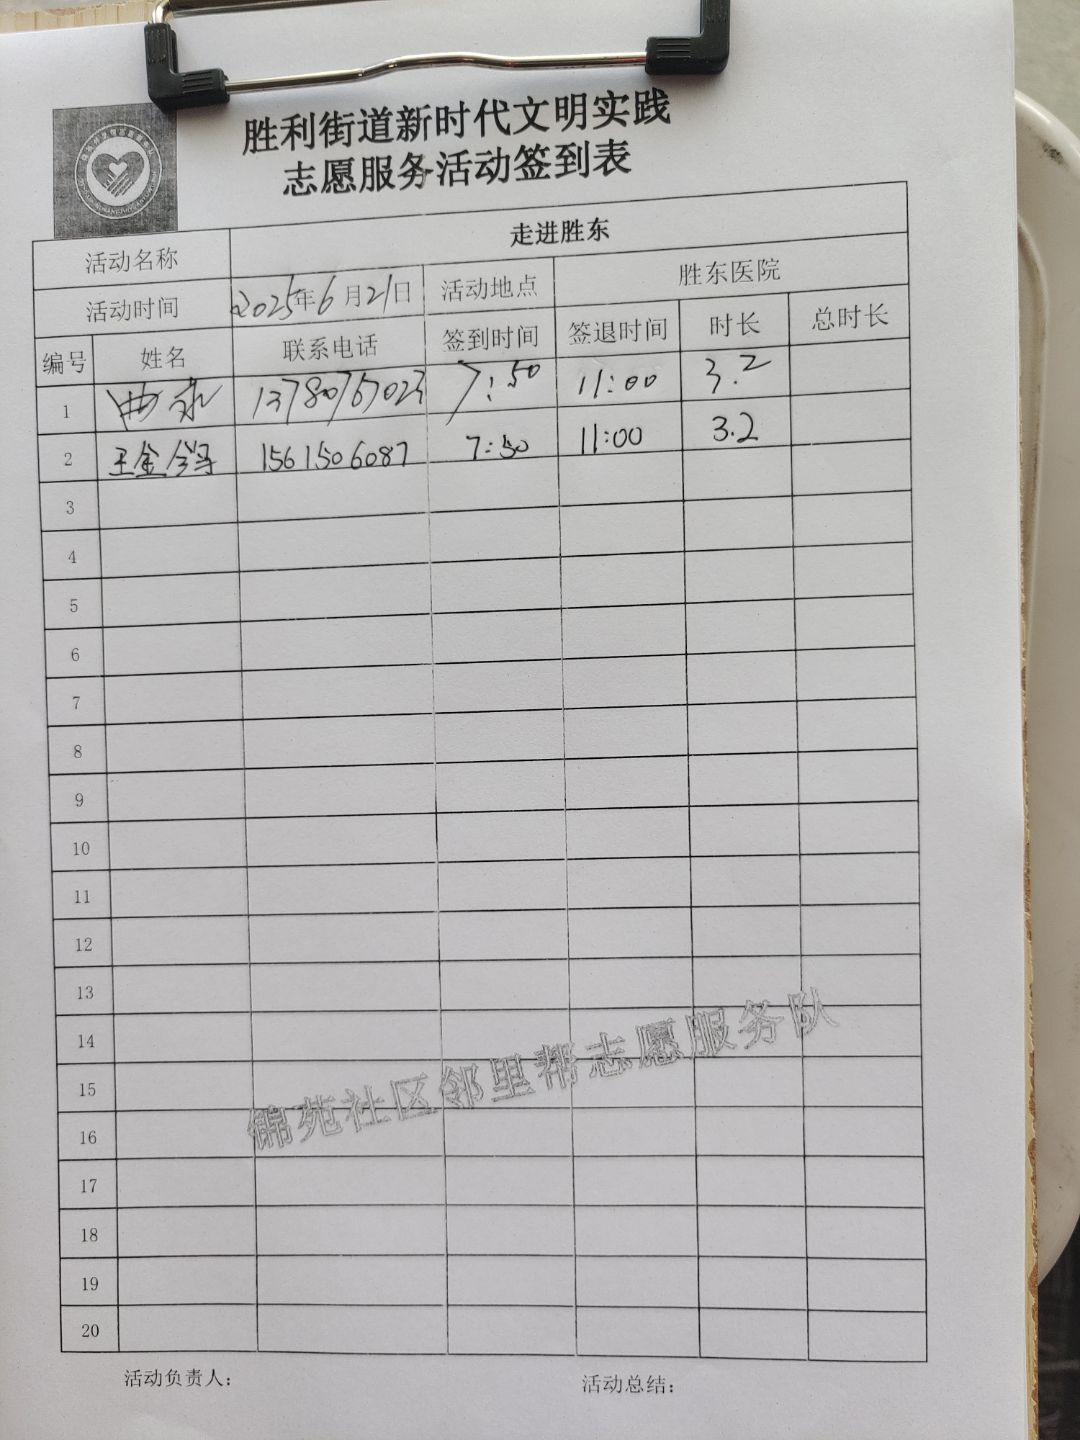 胜利街道新时代文明实践
志愿服务活动签到表
活动名称 走进胜东
活动时间 2025年6月21日 活动地点 胜东医院
编号 姓名 联系电话 签到时间 签退时间 时长 总时长
1 曲永 7:50 11:00 3.2
2 王金 15615066087 7:50 11:00 3.2
3
4
5
6
7
8
9
10
11
12
13
14
15
16
17
18
19
20
锦苑社区邻里帮志愿服务队
活动负责人： 活动总结：